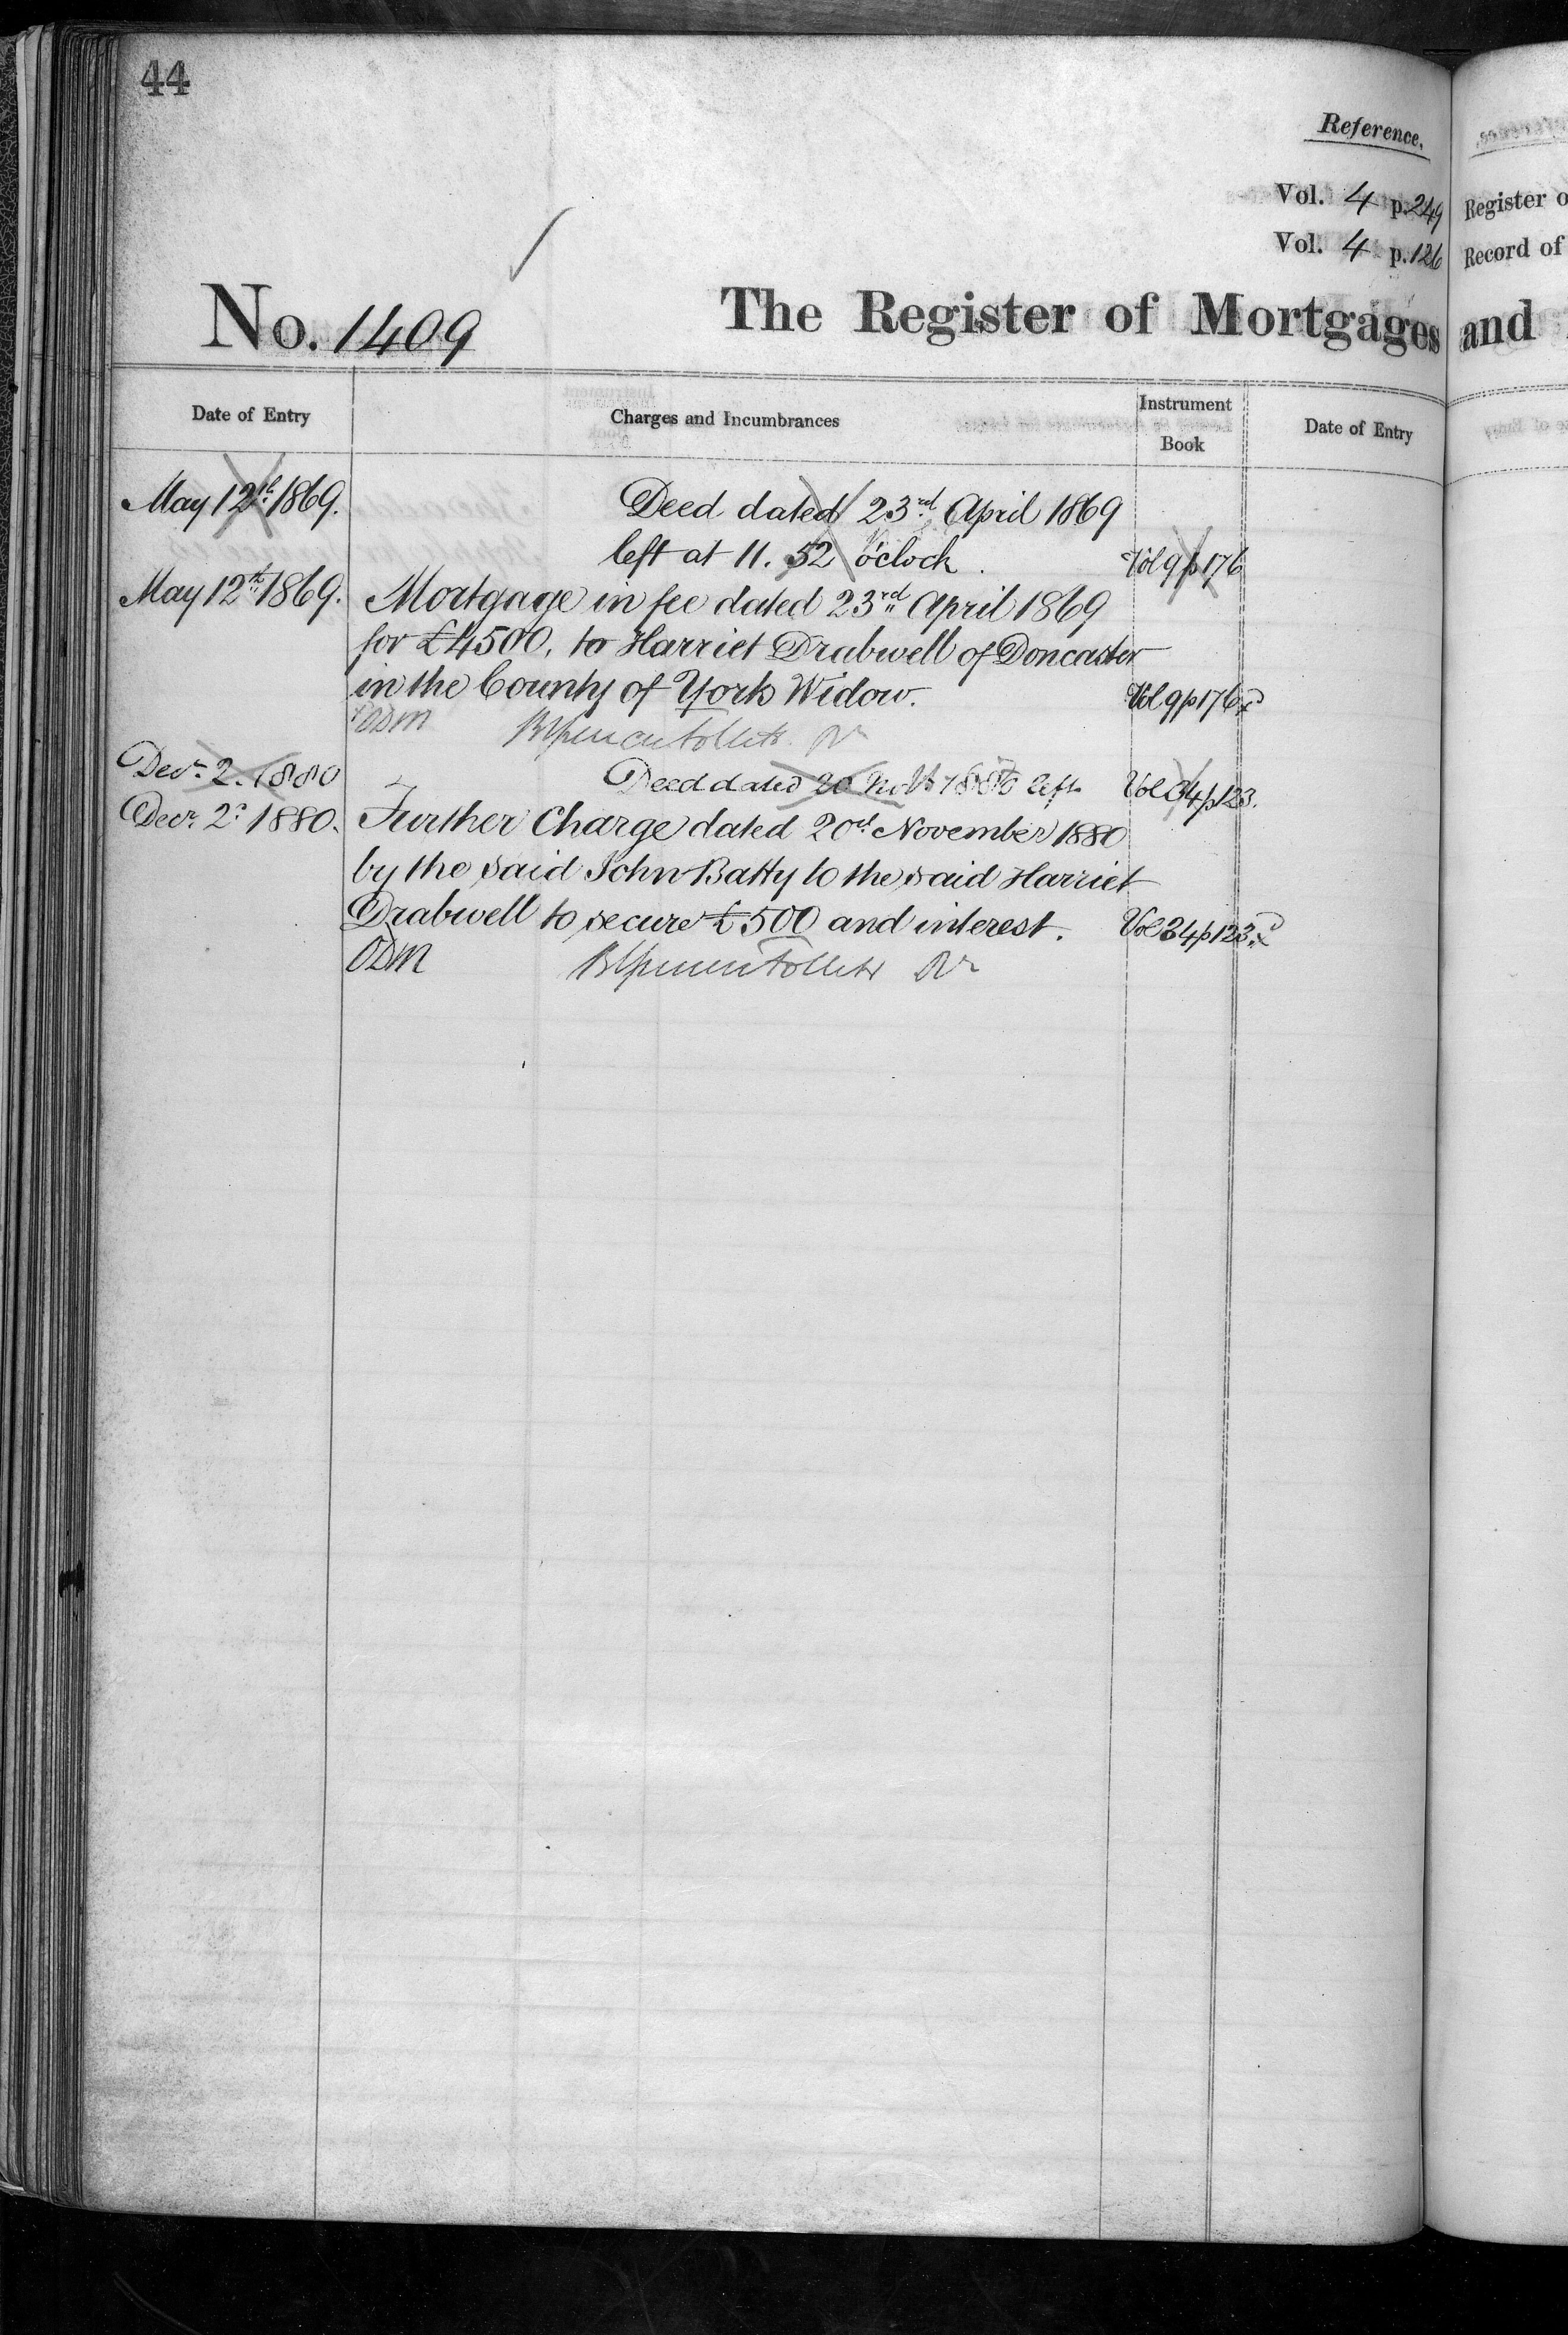 44
Reference.
Vol. 4 p. 249 Register o
Vol. 4 p. 126 Record of
No. 1409 The Register of Mortgages and
Date of Entry Charges and Incumbrances Instrument Book Date of Entry
May 12th 1869. Deed dated 23rd April 1869
left at 11.52 o'clock. Vol 9 p 176
May 12th 1869. Mortgage in fee dated 23rd April 1869
for £4500, to Harriet Drabwell of Doncaster
in the County of York Widow. Vol 9 p 176
ODM
Decr. 2. 1880 Deed dated 20 Novr 1880 left Vol 34 p 123.
Decr. 2d 1880. Further Charge dated 20th November 1880
by the said John Batty to the said Harriet
Drabwell to secure £500 and interest. Vol 34 p 123
ODM